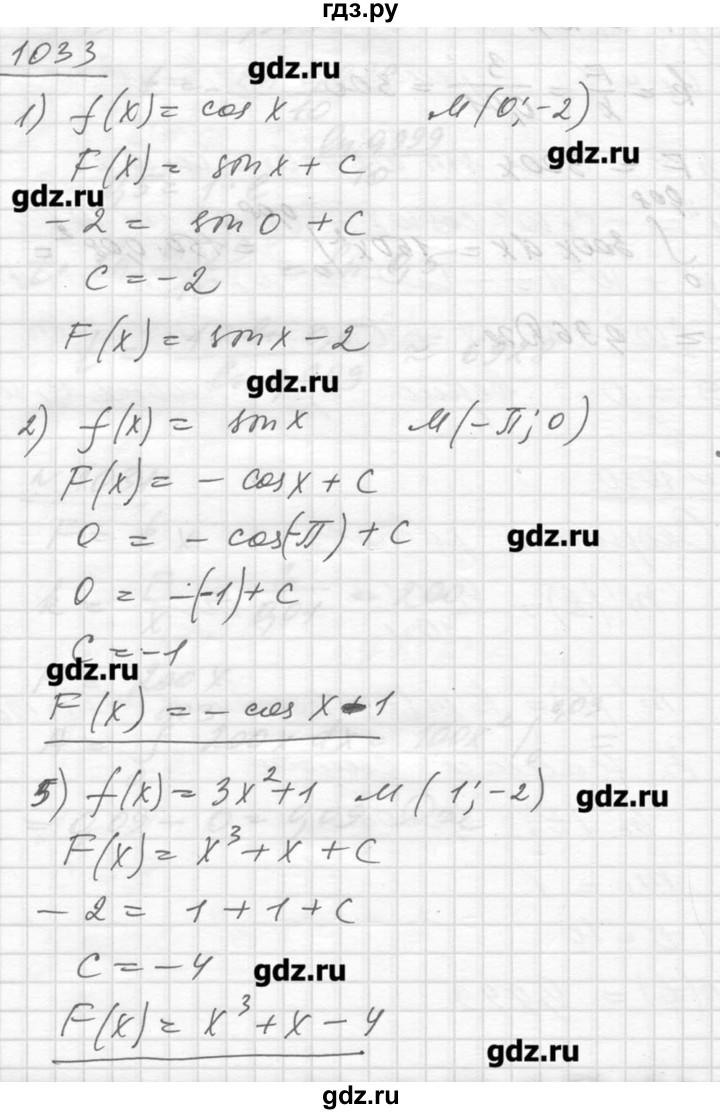 гдз.ру
1033
gdz.ru
1) f(x) = cos x M(0; -2)
F(x) = sin x + C
gdz.ru
gdz.ru
-2 = sin 0 + C
C = -2
F(x) = sin x - 2
gdz.ru
2) f(x) = sin x M(-π; 0)
F(x) = - cos x + C
0 = - cos(-π) + C
gdz.ru
0 = -(-1) + C
C = -1
gdz.ru
F(x) = - cos x - 1
5) f(x) = 3x² + 1 M(1; -2)
gdz.ru
F(x) = x³ + x + C
-2 = 1 + 1 + C
C = -4
gdz.ru
F(x) = x³ + x - 4
gdz.ru
gdz.ru